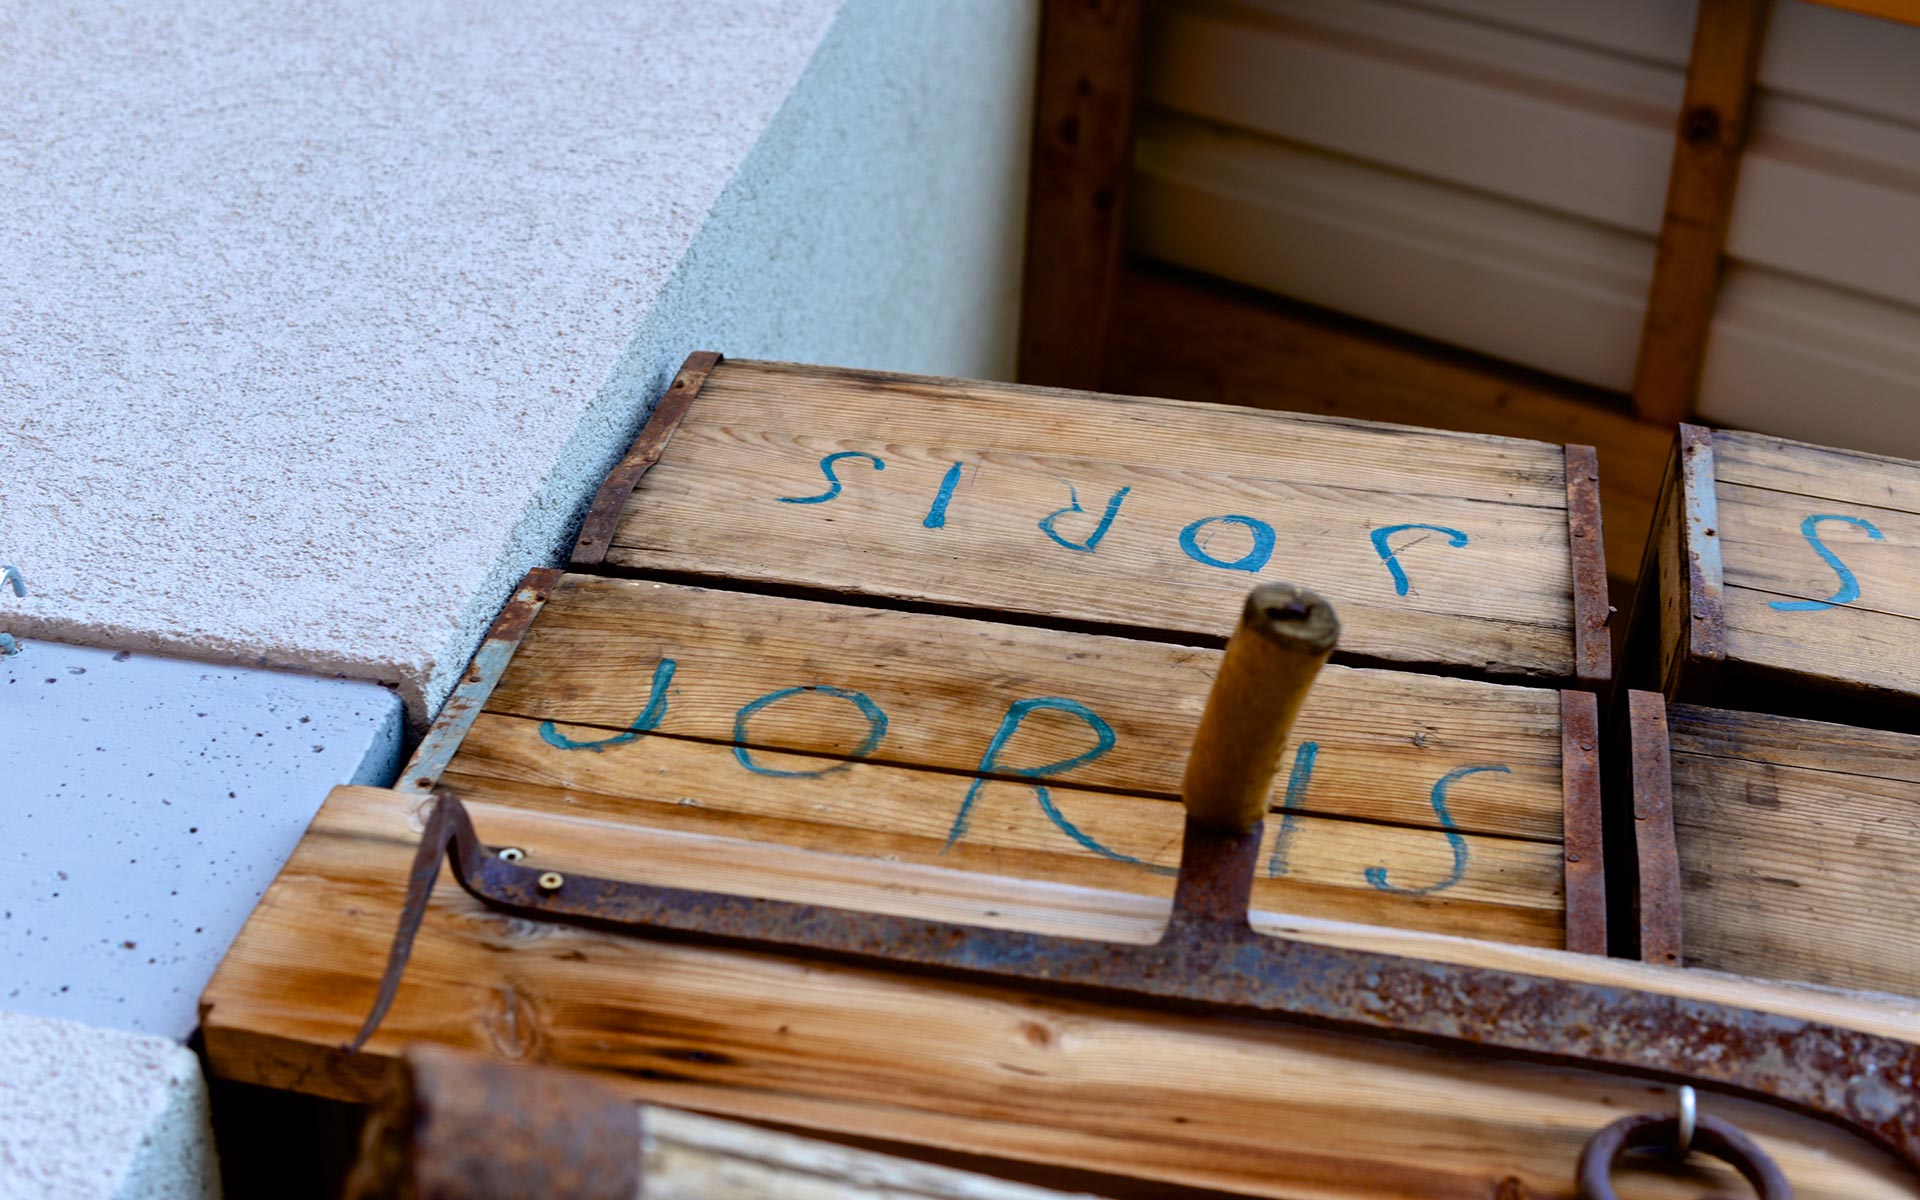 JORIS
S
JORIS